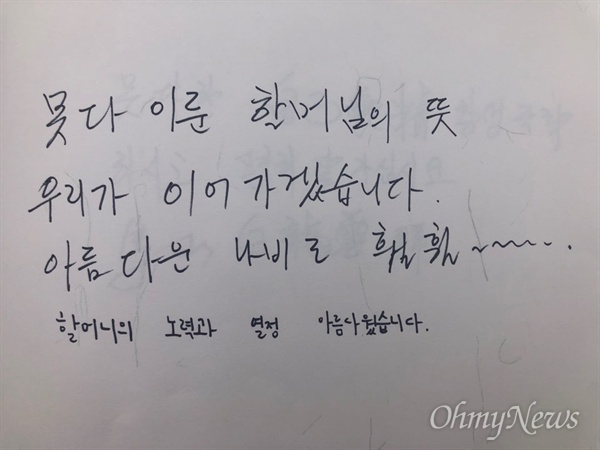 못다 이룬 할머님의 뜻
우리가 이어 가겠습니다.
아름다운 나비로 훨훨~~~~.
할머니의 노력과 열정 아름다웠습니다.
OhmyNews